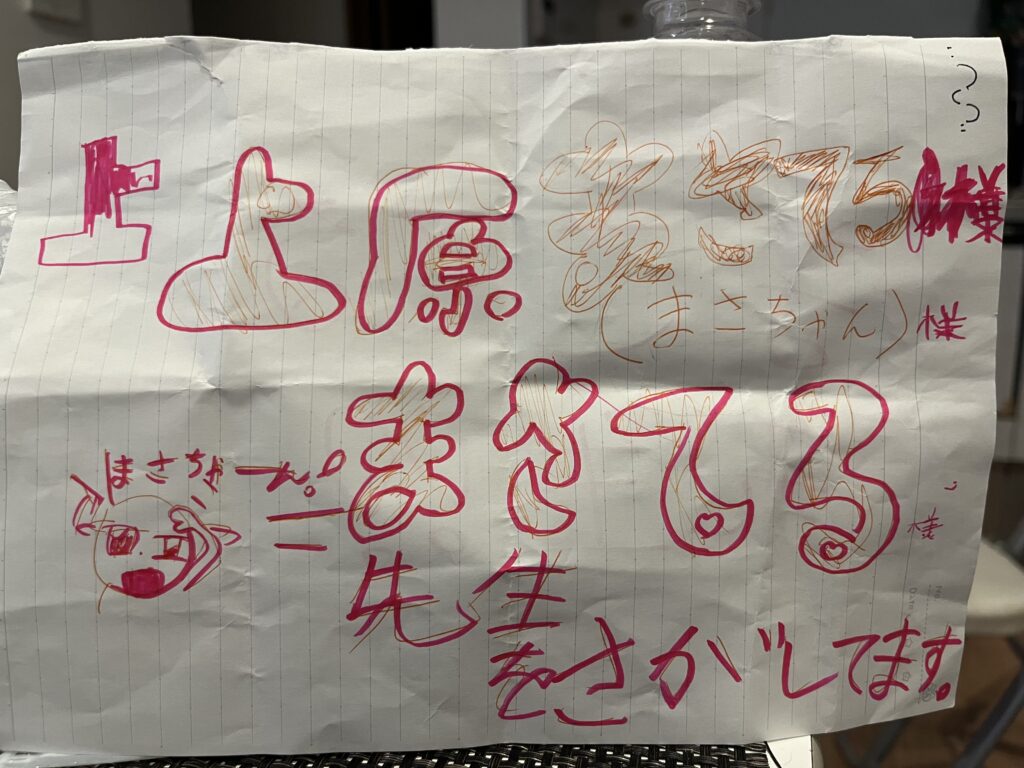 上原 まさてる様
(まさちゃん)様
まさちゃーん!
まさてる様
先生
をさがしてます。